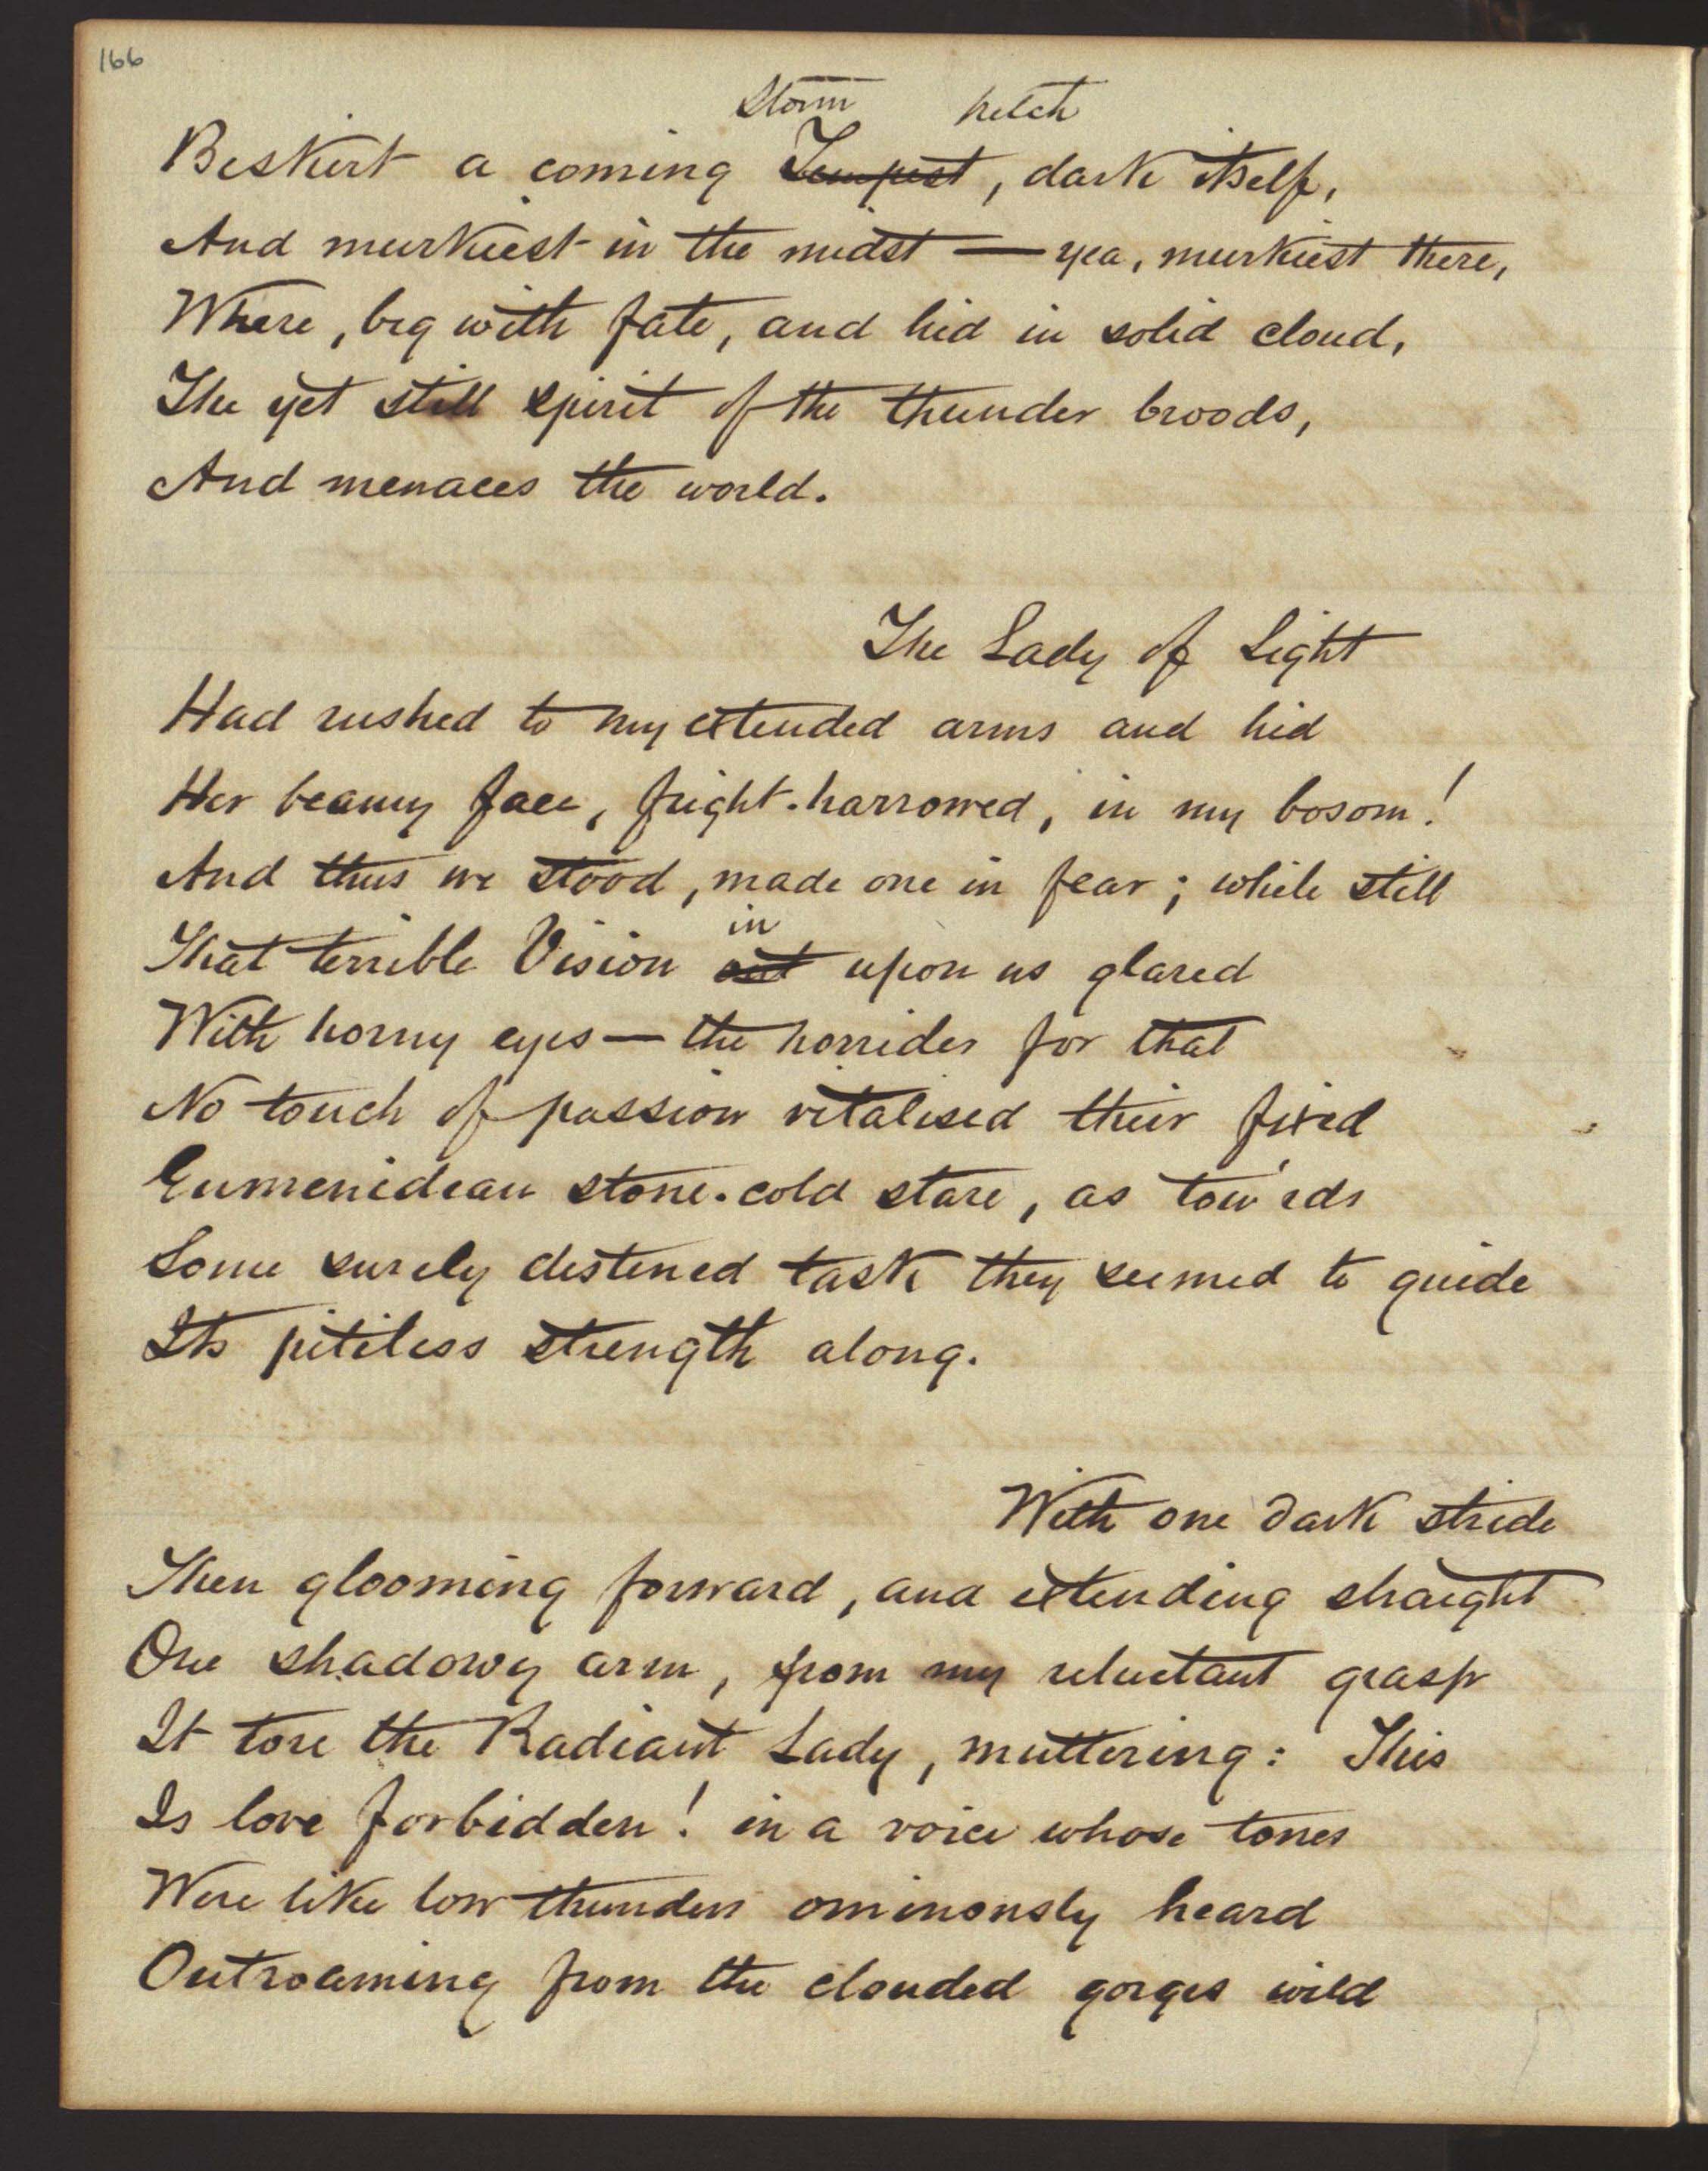 166
storm pitch
Beskirt a coming Tempest, dark itself,
And murkiest in the midst — yea, murkiest there,
Where, big with fate, and hid in solid cloud,
The yet still spirit of the thunder broods,
And menaces the world.
The Lady of Light
Had rushed to my extended arms and hid
Her beamy face, fright-harrowed, in my bosom!
And thus we stood, made one in fear; while still
in
That terrible Vision out upon us glared
With horny eyes — the horrider for that
No touch of passion vitalised their fixed
Eumenidean stone-cold stare, as tow'rds
Some surely destined task they seemed to guide
Its pitiless strength along.
With one dark stride
Then glooming forward, and extending straight
One shadowy arm, from my reluctant grasp
It tore the Radiant Lady, muttering: This
Is love forbidden! in a voice whose tones
Were like low thunders ominously heard
Outroaming from the clouded gorges wild